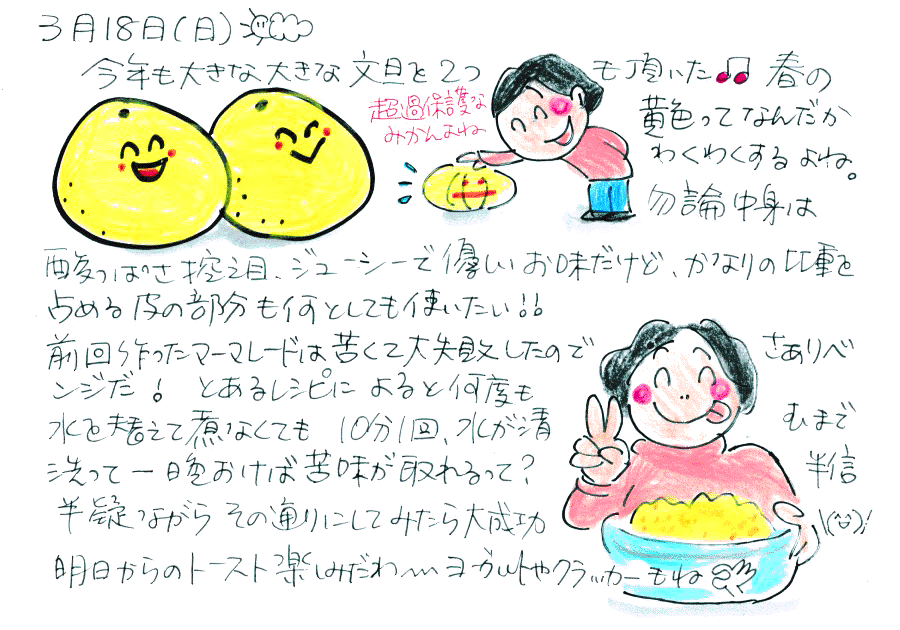 3月18日(日)
今年も大きな大きな文旦を2つも頂いた♫ 春の
超過保護な
みかんよね
黄色ってなんだか
わくわくするよね。
勿論中身は
酸っぱさ控え目、ジューシーで優しいお味だけど、かなりの比重を
占める皮の部分も何としても使いたい!!
前回作ったマーマレードは苦くて大失敗したので さありべ
ンジだ! とあるレシピによると何度も
水を替えて煮なくても 10分1回、水が清むまで
洗って一晩おけば苦味が取れるって? 半信
半疑ながらその通りにしてみたら大成功\(^^)/
明日からのトースト楽しみだわ〜 ヨーグルトやクラッカーもね